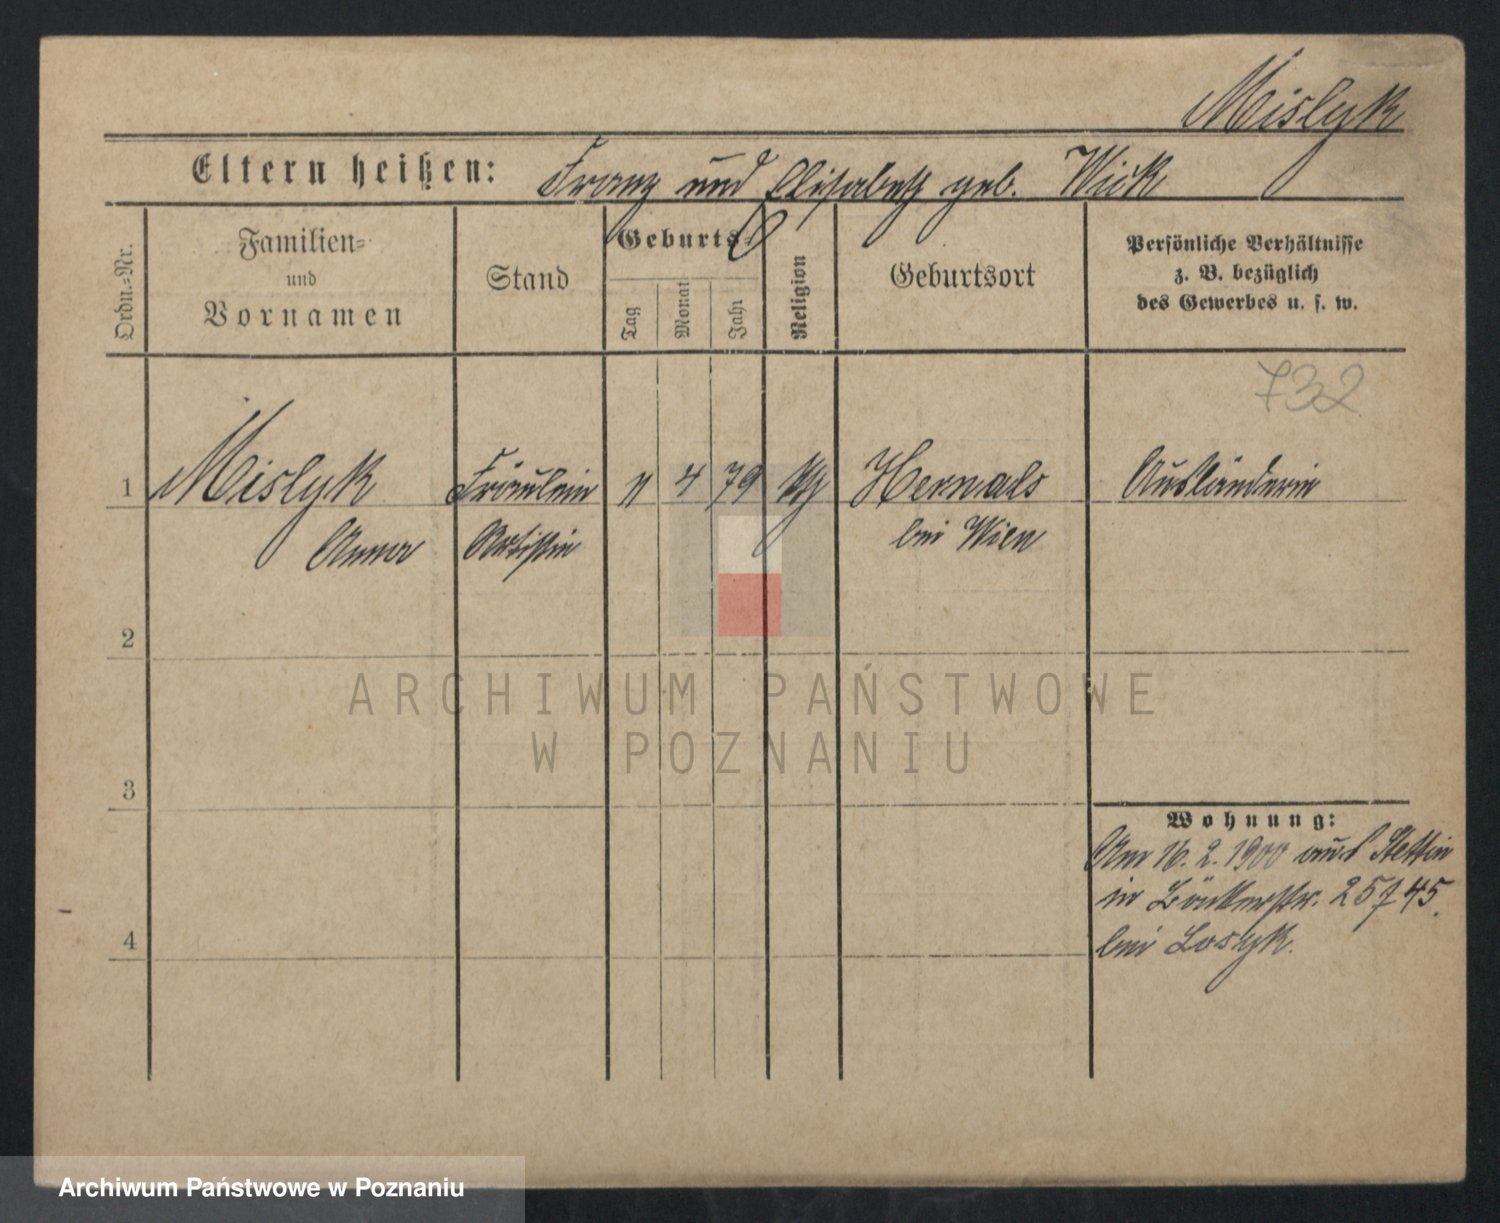 Mislyk
Eltern heißen: Franz und Elisabeth geb. Wick
Ordn.=Nr.
Familien=
und
Vornamen
Stand
Geburts=
Tag
Monat
Jahr
Religion
Geburtsort
Persönliche Verhältnisse
z. B. bezüglich
des Gewerbes u. s. w.
732
1 Mislyk Fräulein 11 4 79 Hernals Ausländerin
Anna Artistin bei Wien
2
ARCHIWUM PAŃSTWOWE
W POZNANIU
3
Wohnung:
Am 16. 2. 1900 aus Stettin
in 25/45.
4
bei Losyk.
Archiwum Państwowe w Poznaniu